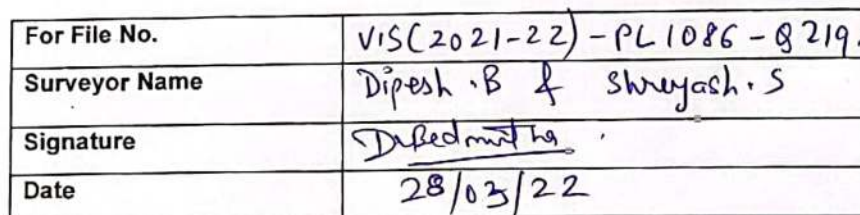 For File No. VIS(2021-22)-PL1086-Q219.
Surveyor Name Dipesh.B & Shreyash.S
Signature
Date 28/03/22